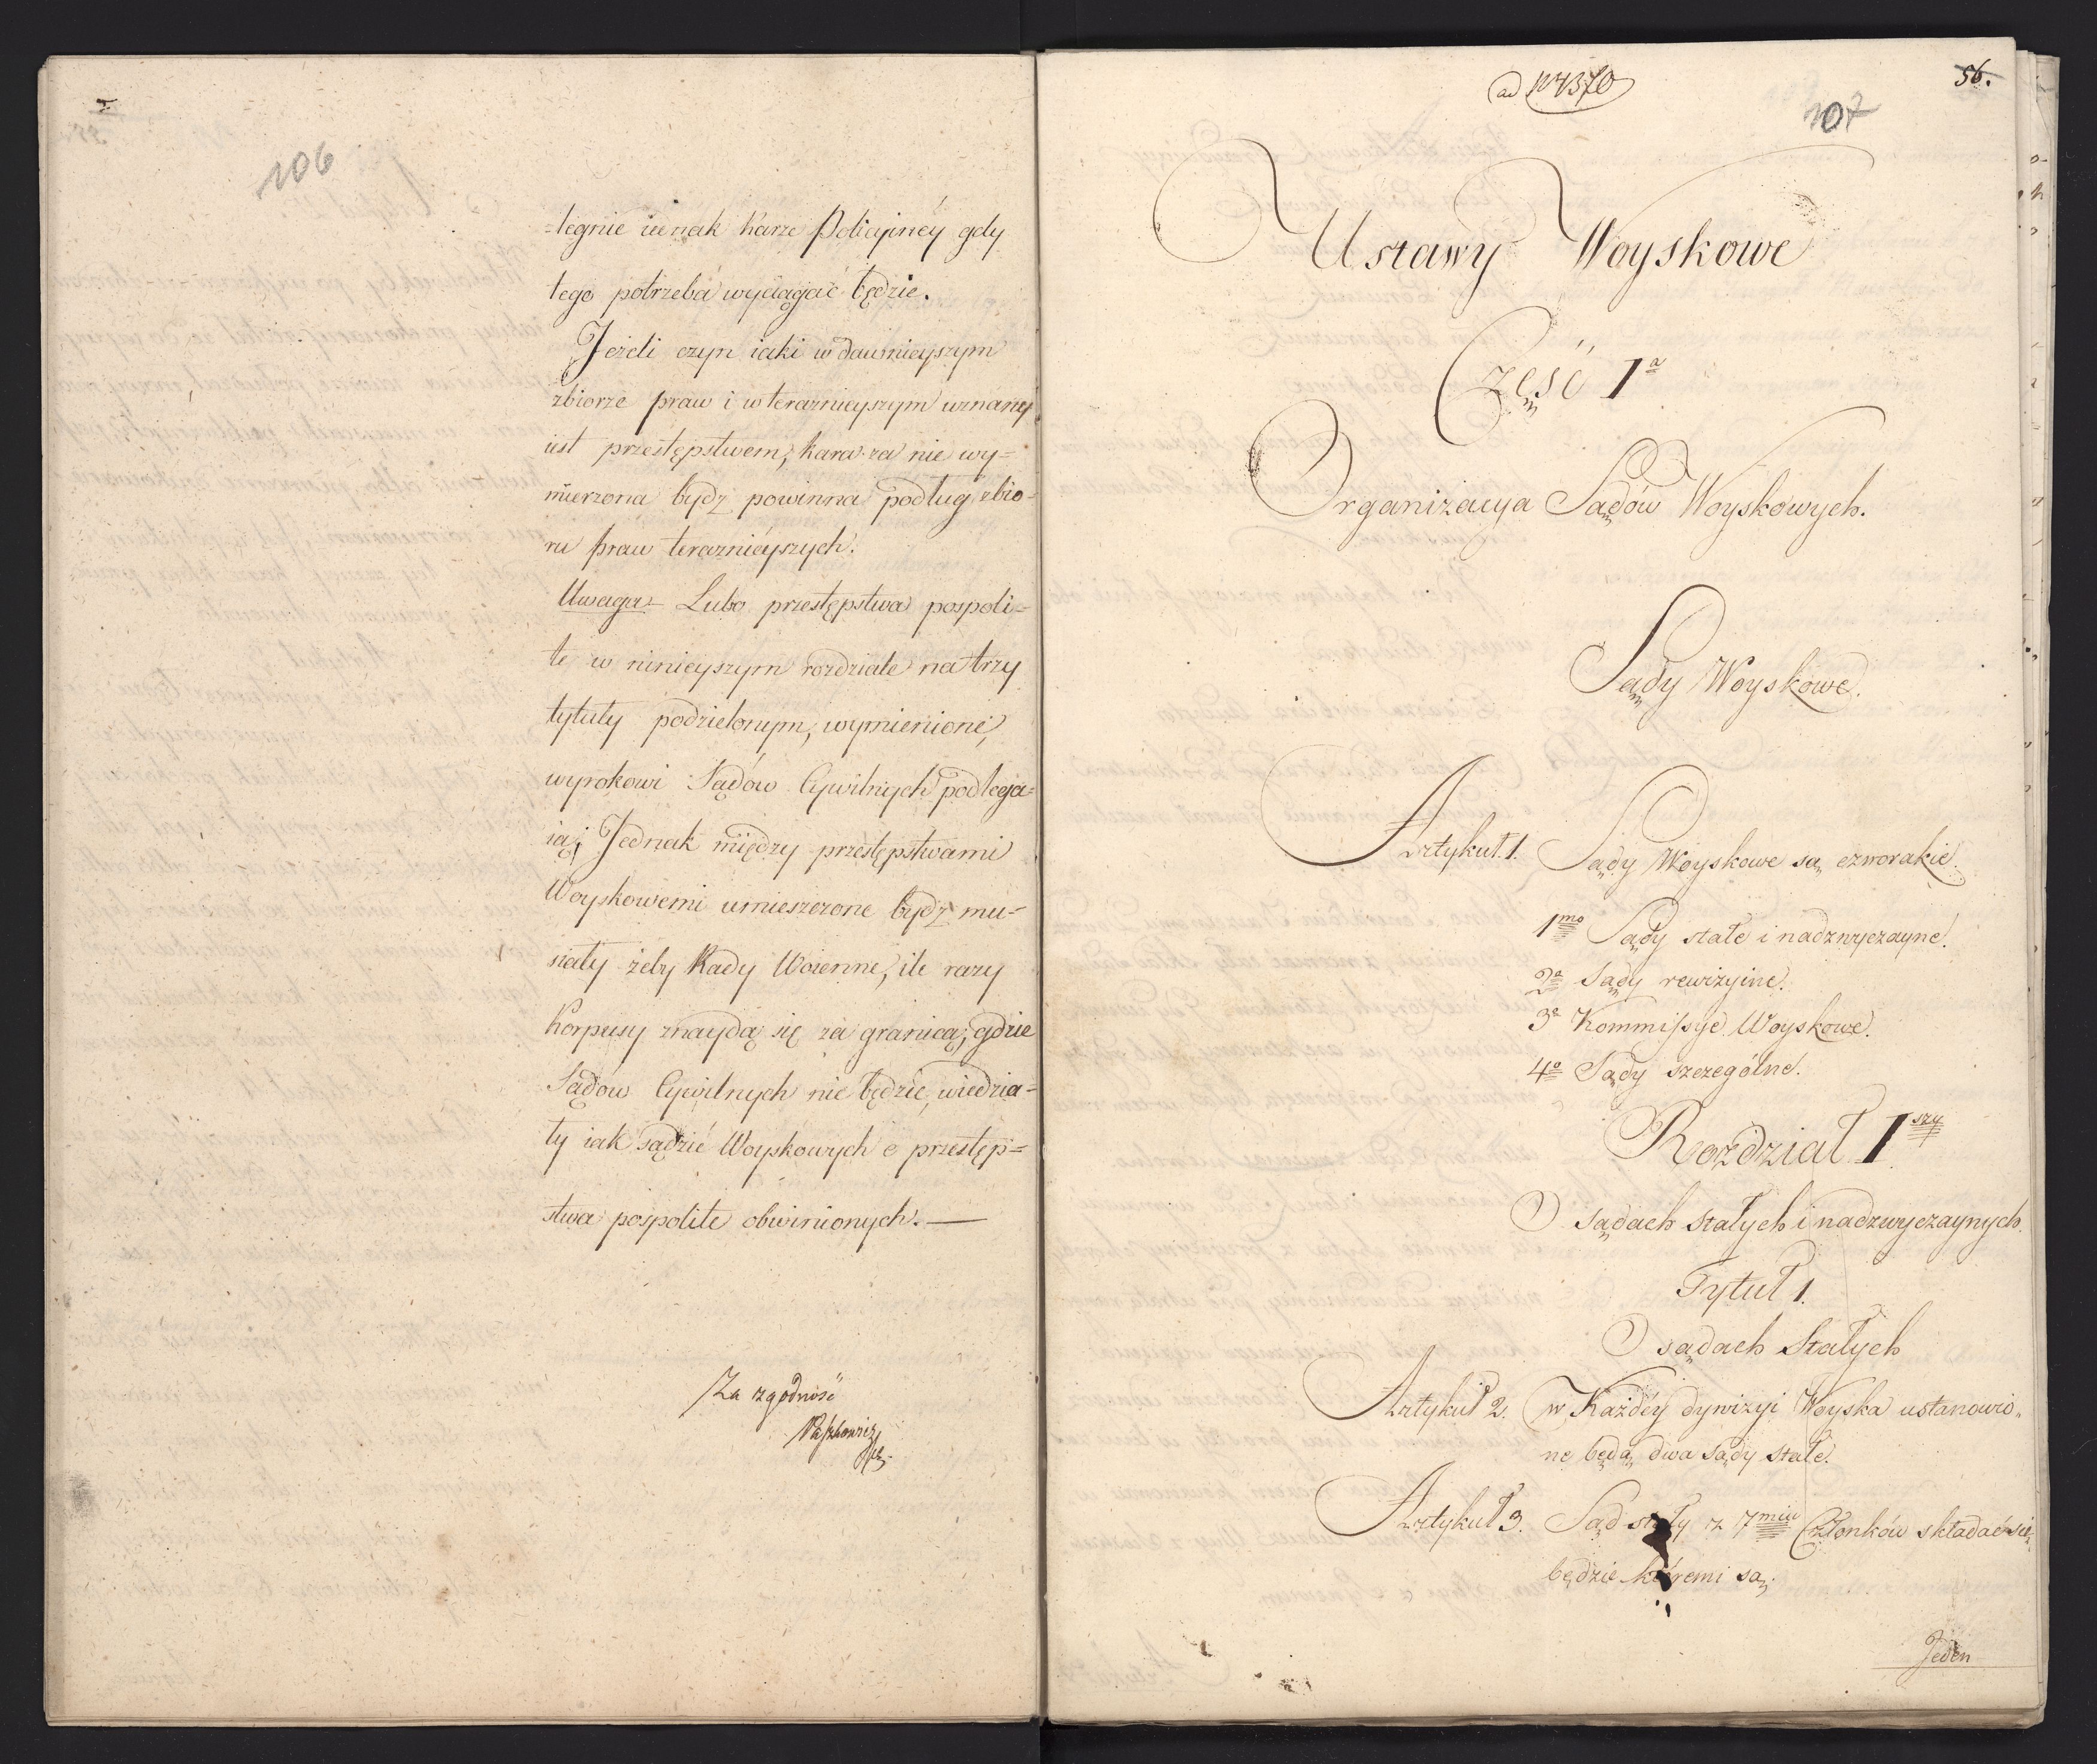 106
-legnie iednak karze Policyinéy gdy
tego potrzeba wyciągać będzie.
Jeżeli czyn iaki w dawnieyszym
zbiorze praw i w teraznieyszym uznany
iest przestępstwem, kara za nie wy-
mierzona bydz powinna podług zbio-
ru praw teraznieyszych.
Uwaga Lubo przestępstwa pospoli-
te w ninieyszym rozdziale na trzy
tytuły podzielonym, wymienione,
wyrokowi Sądów Cywilnych podlega-
ią; Jednak między przestępstwami
Woyskowemi umieszczone bydz mu-
siały żeby Rady Woienne, ile razy
Korpusy znaydą się za granicą, gdzie
Sądow Cywilnych nie będzie, wiedzia-
ły iak sądzić Woyskowych o przestęp-
stwa pospolite obwinionych.—
Za zgodność
ad N 4370
56.
107
Ustawy Woyskowe
Część 1a
Organizacya Sądów Woyskowych.
Sądy Woyskowe.
Artykuł.1. Sądy Woyskowe są czworakie.
1mo Sądy stałe i nadzwyczayne.
2o Sądy rewizyine.
3o Kommissye Woyskowe.
4o Sądy szczególne.
Rozdział 1szy
O sądach stałych i nadzwyczaynych.
Tytuł 1.
O sądach Stałych
Artykuł 2. w Każdéy dywizyi Woyska ustanowio„
ne będą dwa sądy stałe.
Artykuł 3. Sąd stały z 7miu Członków składać się
będzie któremi są.
Jeden